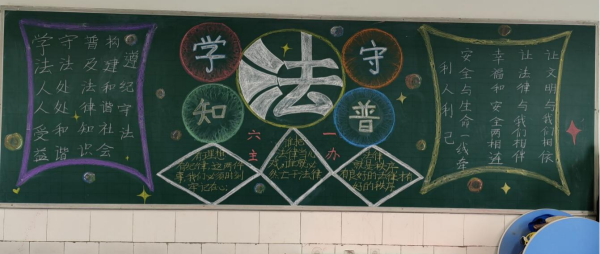 遵纪守法
构建和谐社会
普及法律知识
守法处处和谐
学法人人受益
学
知
法
守
普
六主
一办
牢记在心
就是秩序
好的秩序
让文明与我们相依
让法律与我们相伴
幸福和安全两相连
安全与生命一线牵
利人利己